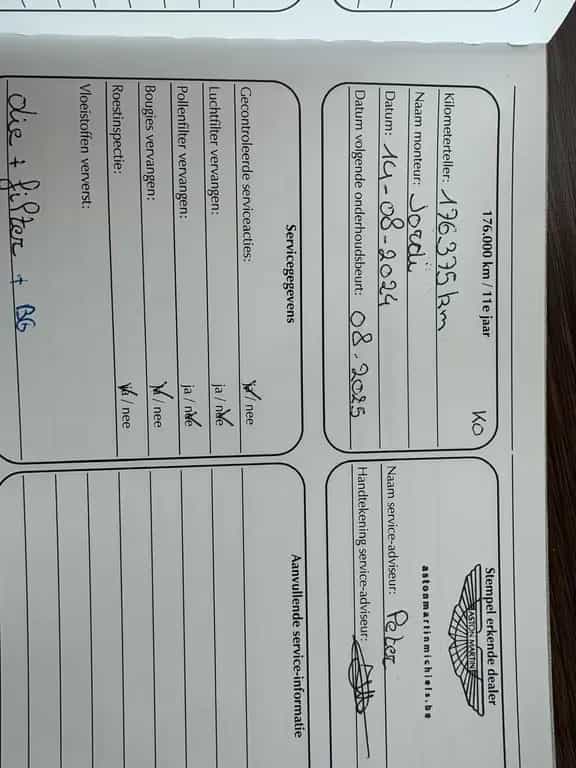 176.000 km / 11e jaar
KO
Kilometerteller: 176375 km
Naam monteur: Jordi
Datum: 14-08-2024
Datum volgende onderhoudsbeurt: 08.2025
Stempel erkende dealer
ASTON MARTIN
astonmartinmichiels.be
Naam service-adviseur: Peter
Handtekening service-adviseur:
Servicegegevens
Gecontroleerde serviceacties: ja / nee
Luchtfilter vervangen: ja / nee
Pollenfilter vervangen: ja / nee
Bougies vervangen: ja / nee
Roestinspectie: ja / nee
Vloeistoffen ververst:
olie + filter + BG
Aanvullende service-informatie